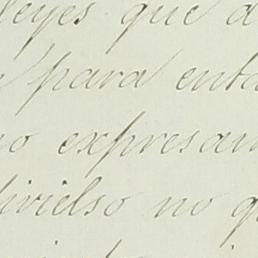 leyes que a
para enta
no expresam
livielso no q